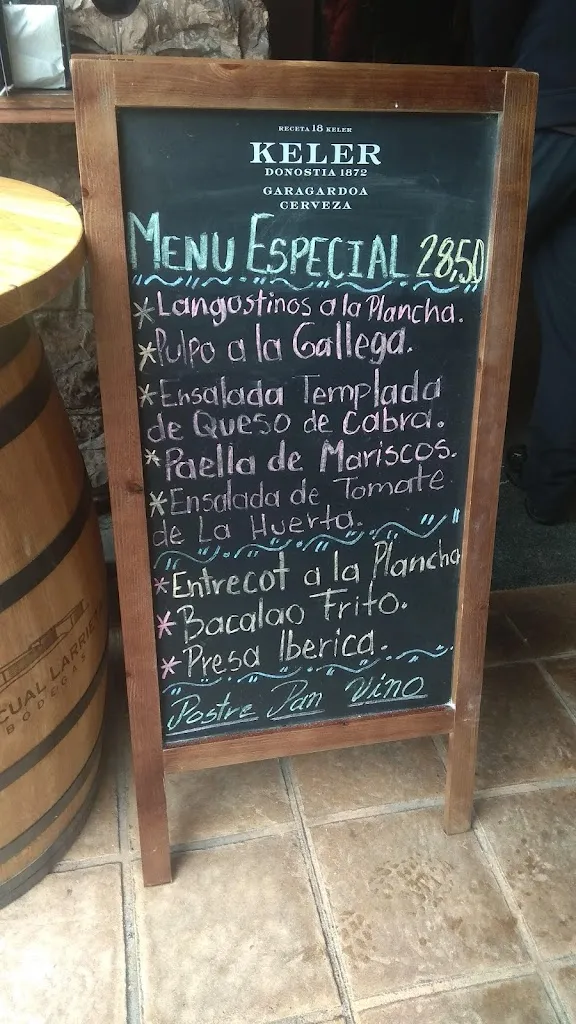 RECETA 18 KELER
KELER
DONOSTIA 1872
GARAGARDOA
CERVEZA
MENU ESPECIAL 28,50
*Langostinos a la Plancha.
*Pulpo a la Gallega.
*Ensalada Templada
de Queso de Cabra.
*Paella de Mariscos.
*Ensalada de Tomate
de La Huerta.
*Entrecot a la Plancha
*Bacalao Frito.
*Presa Iberica.
Postre Pan Vino
CUAL LARRIE
BODEGAS